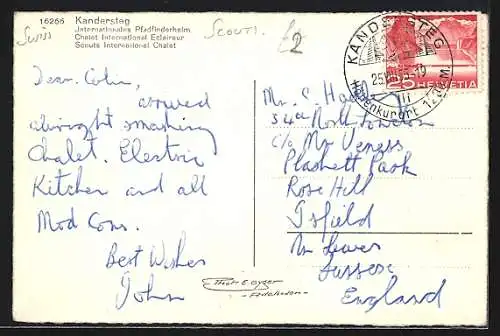 16266 Kandersteg
Internationales Pfadfinderheim
Chalet International Eclaireur
Scouts International Chalet
Swiss
SCOUTS.
£2
KANDERSTEG
25
Höhenkurort 1200 M.
25 HELVETIA
Dear Colin,
arrived
alright smashing
Chalet. Electric
Kitchen and all
Mod Cons.
Best Wishes
John
Mr. C
34th North London
c/o Mr Veness
Plashett Park
Rose Hill
Isfield
Nr Lewes
Sussex
England
Phot. E. Gyger
- Adelboden -